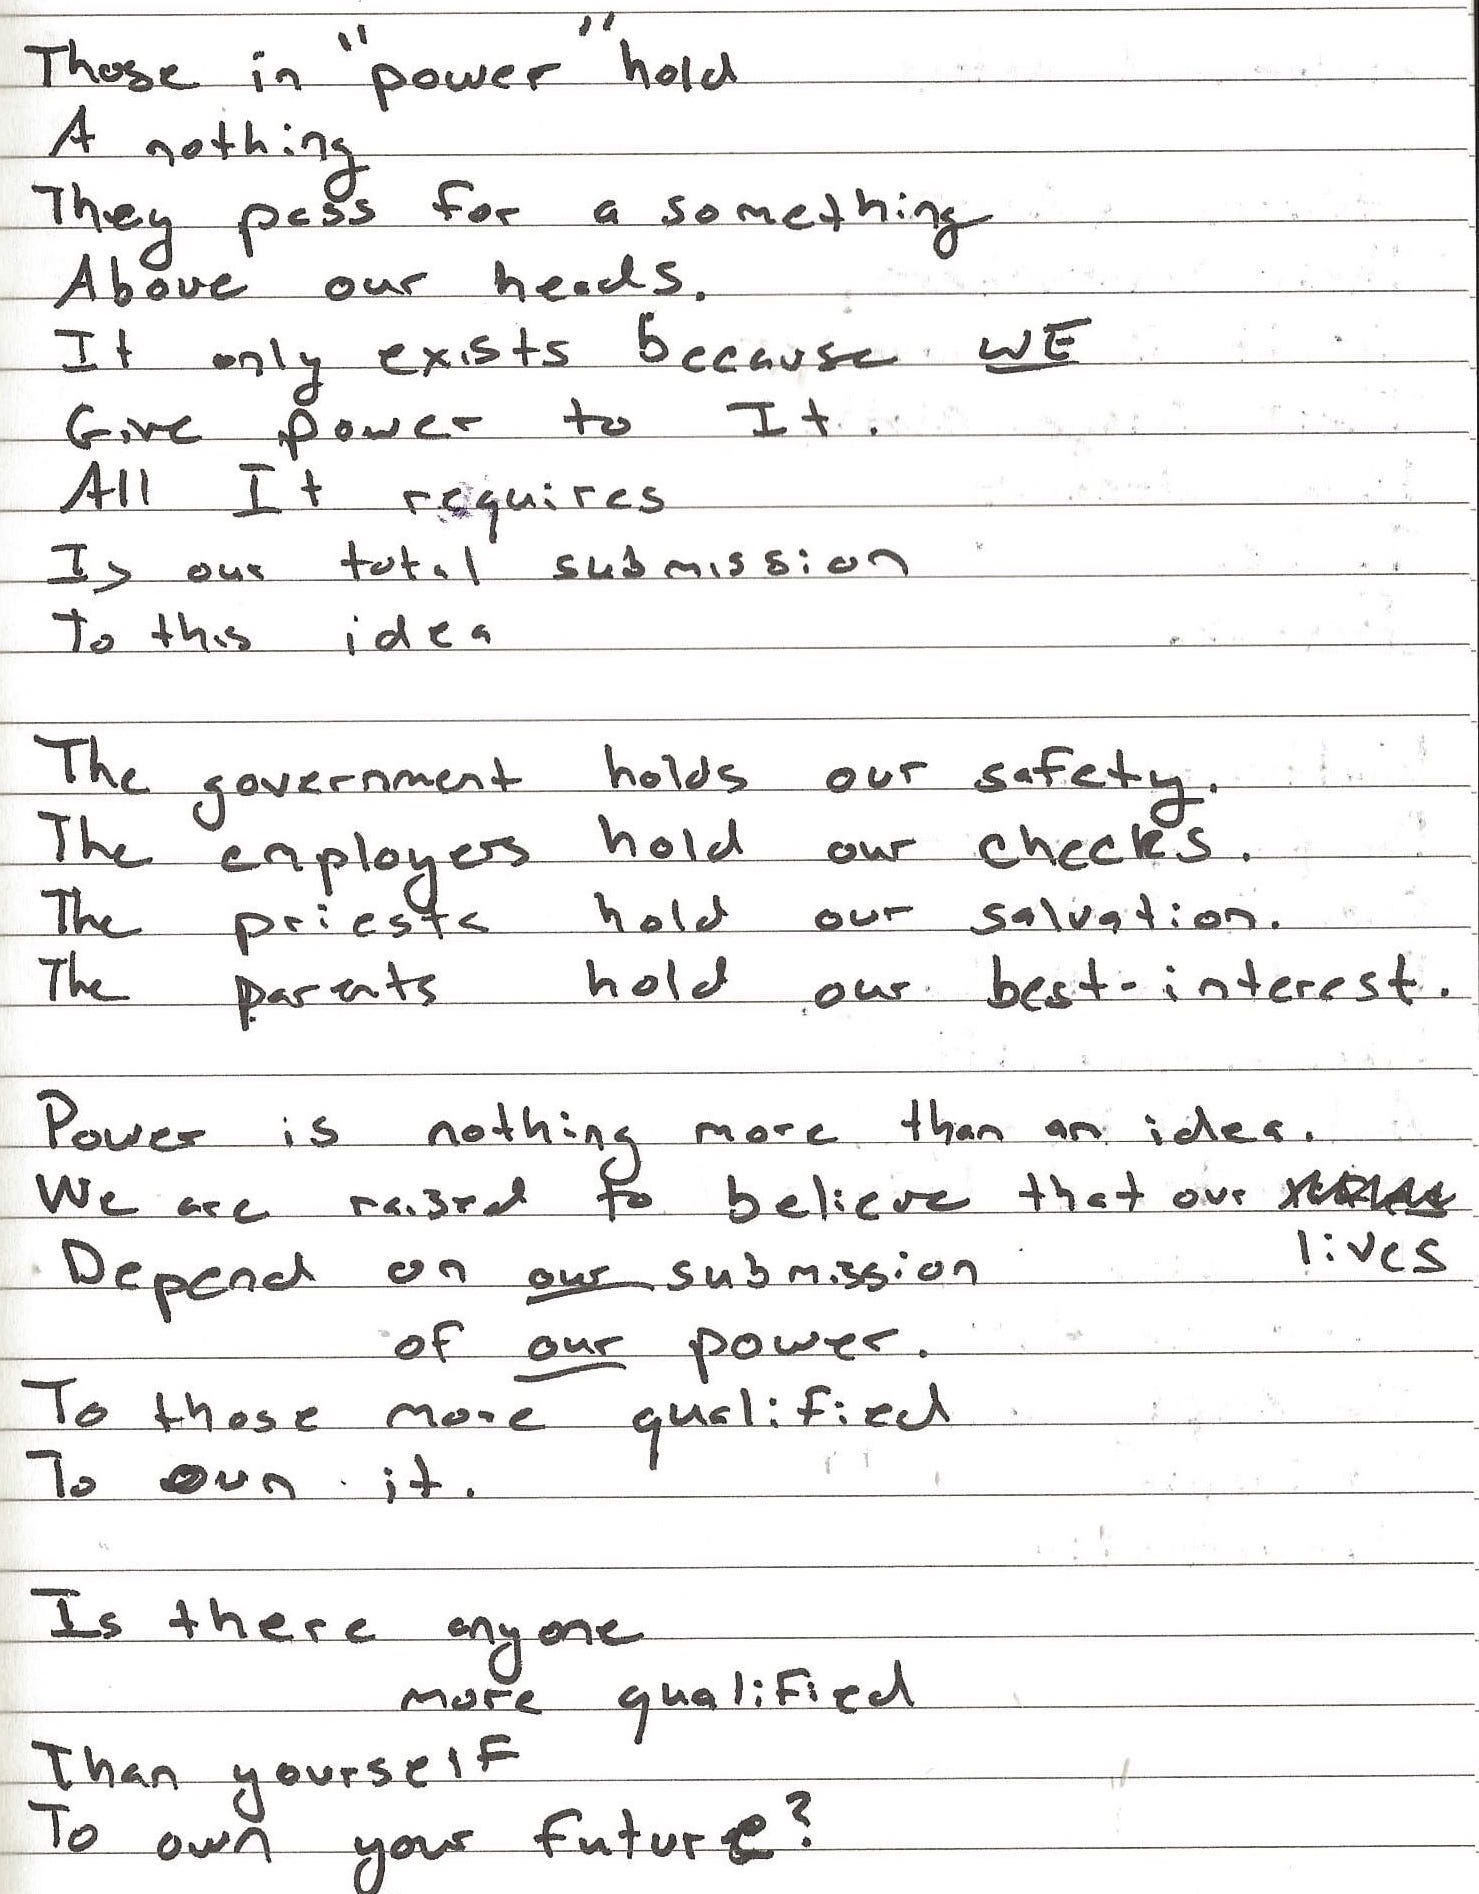 Those in "power" hold
A nothing
They pass for a something
Above our heads.
It only exists because WE
Give power to It.
All It requires
Is our total submission
To this idea
The government holds our safety.
The employers hold our checks.
The priests hold our salvation.
The parents hold our best-interest.
Power is nothing more than an idea.
We are raised to believe that our
lives
Depend on our submission
of our power.
To those more qualified
To own it.
Is there anyone
more qualified
Than yourself
To own your future?